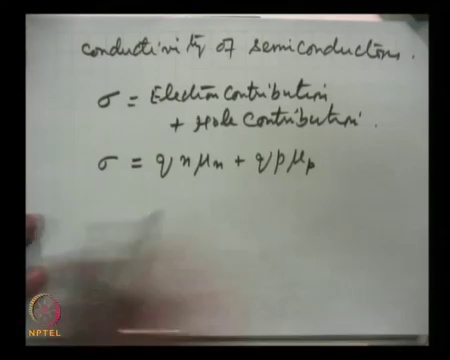 conductivity of semiconductors.
σ = Electron contribution
+ Hole contribution.
σ = q n μn + q p μp
NPTEL